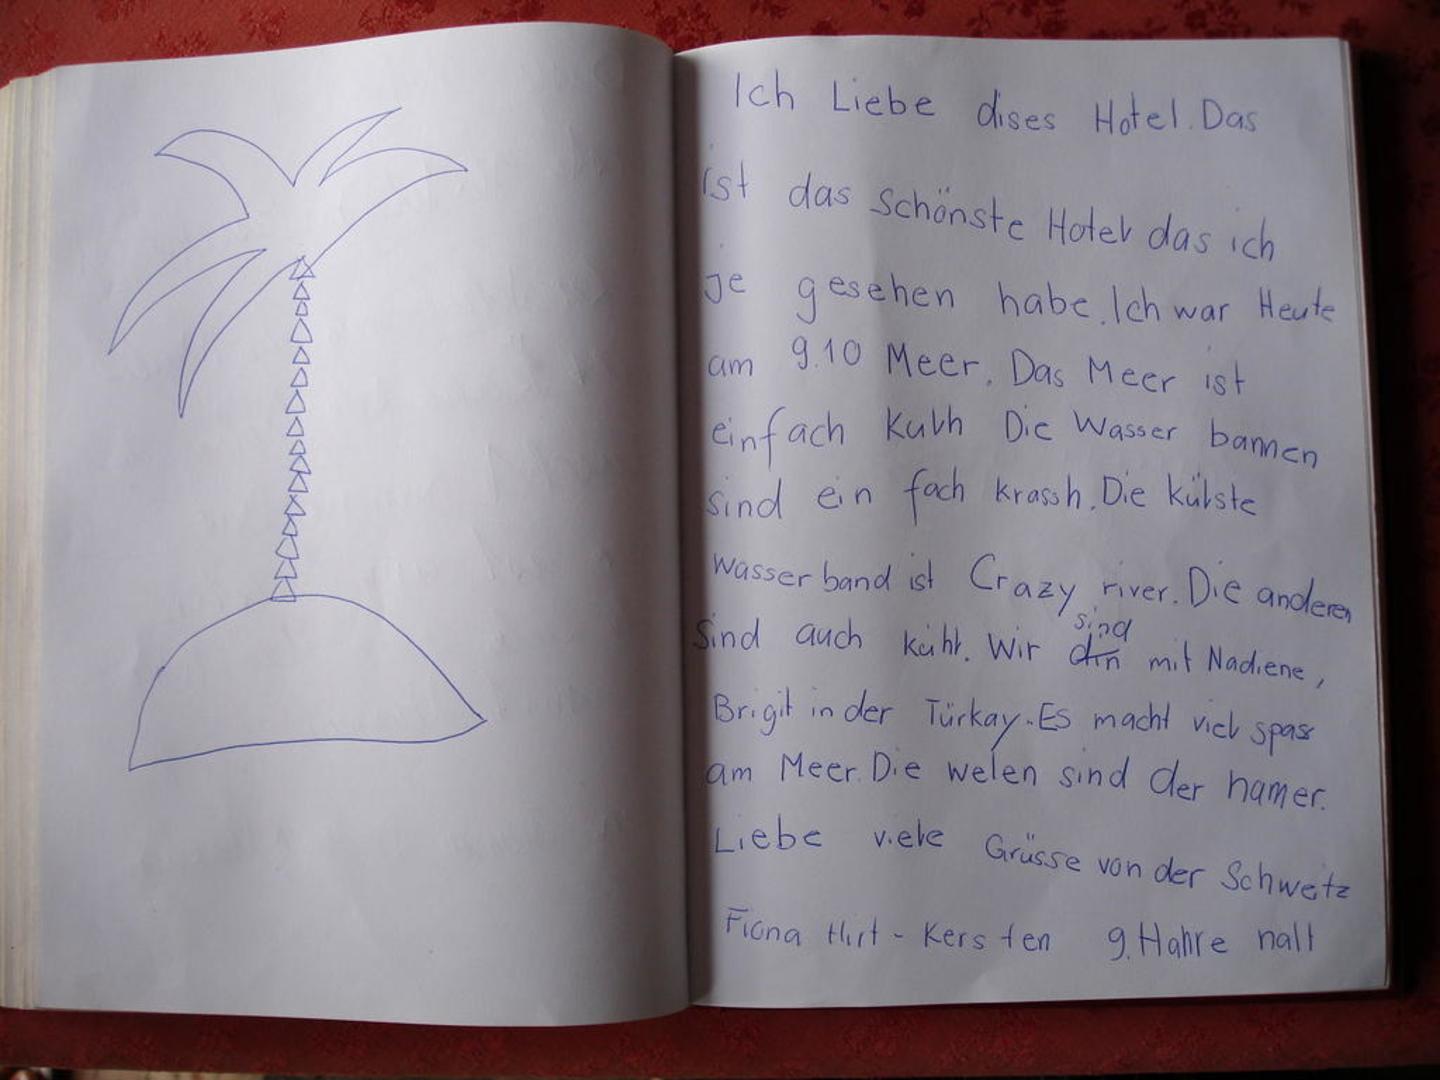 Ich Liebe dises Hotel. Das
ist das schönste Hotel das ich
je gesehen habe. Ich war Heute
am 9.10 Meer. Das Meer ist
einfach Kulh Die Wasser bannen
sind ein fach krassh. Die külste
wasser band ist Crazy river. Die anderen
sind auch kühl. Wir sind mit Nadiene,
Brigit in der Türkay. Es macht viel spass
am Meer. Die welen sind der hamer.
Liebe viele Grüsse von der Schweitz
Fiona Hirt - Kersten 9. Hahre halt